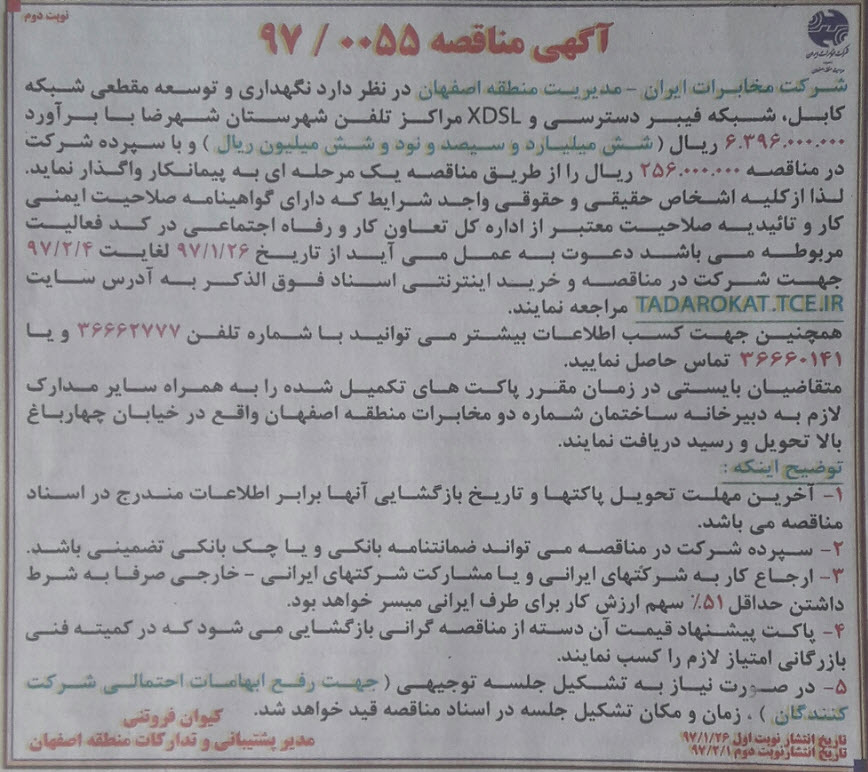 نوبت دوم
آگهی مناقصه ۰۰۵۵ / ۹۷
شرکت مخابرات ایران - مدیریت منطقه اصفهان در نظر دارد نگهداری و توسعه مقطعی شبکه
کابل، شبکه فیبر دسترسی و XDSL مراکز تلفن شهرستان شهرضا با برآورد
۶.۳۹۶.۰۰۰.۰۰۰ ریال ( شش میلیارد و سیصد و نود و شش میلیون ریال ) و با سپرده شرکت
در مناقصه ۲۵۶.۰۰۰.۰۰۰ ریال را از طریق مناقصه یک مرحله ای به پیمانکار واگذار نماید.
لذا از کلیه اشخاص حقیقی و حقوقی واجد شرایط که دارای گواهینامه صلاحیت ایمنی
کار و تائیدیه صلاحیت معتبر از اداره کل تعاون کار و رفاه اجتماعی در کد فعالیت
مربوطه می باشد دعوت به عمل می آید از تاریخ ۹۷/۱/۲۶ لغایت ۹۷/۲/۴
جهت شرکت در مناقصه و خرید اینترنتی اسناد فوق الذکر به آدرس سایت
TADAROKAT.TCE.IR مراجعه نمایند.
همچنین جهت کسب اطلاعات بیشتر می توانید با شماره تلفن ۳۶۶۶۲۷۷۷ و یا
۳۶۶۶۰۱۴۱ تماس حاصل نمایید.
متقاضیان بایستی در زمان مقرر پاکت های تکمیل شده را به همراه سایر مدارک
لازم به دبیرخانه ساختمان شماره دو مخابرات منطقه اصفهان واقع در خیابان چهارباغ
بالا تحویل و رسید دریافت نمایند.
توضیح اینکه :
۱- آخرین مهلت تحویل پاکتها و تاریخ بازگشایی آنها برابر اطلاعات مندرج در اسناد
مناقصه می باشد.
۲- سپرده شرکت در مناقصه می تواند ضمانتنامه بانکی و یا چک بانکی تضمینی باشد.
۳- ارجاع کار به شرکتهای ایرانی و یا مشارکت شرکتهای ایرانی - خارجی صرفا به شرط
داشتن حداقل ۵۱٪ سهم ارزش کار برای طرف ایرانی میسر خواهد بود.
۴- پاکت پیشنهاد قیمت آن دسته از مناقصه گرانی بازگشایی می شود که در کمیته فنی
بازرگانی امتیاز لازم را کسب نمایند.
۵- در صورت نیاز به تشکیل جلسه توجیهی ( جهت رفع ابهامات احتمالی شرکت
کنندگان ) ، زمان و مکان تشکیل جلسه در اسناد مناقصه قید خواهد شد.
تاریخ انتشار نوبت اول ۹۷/۱/۲۶
تاریخ انتشار نوبت دوم ۹۷/۲/۱
کیوان فروتنی
مدیر پشتیبانی و تدارکات منطقه اصفهان